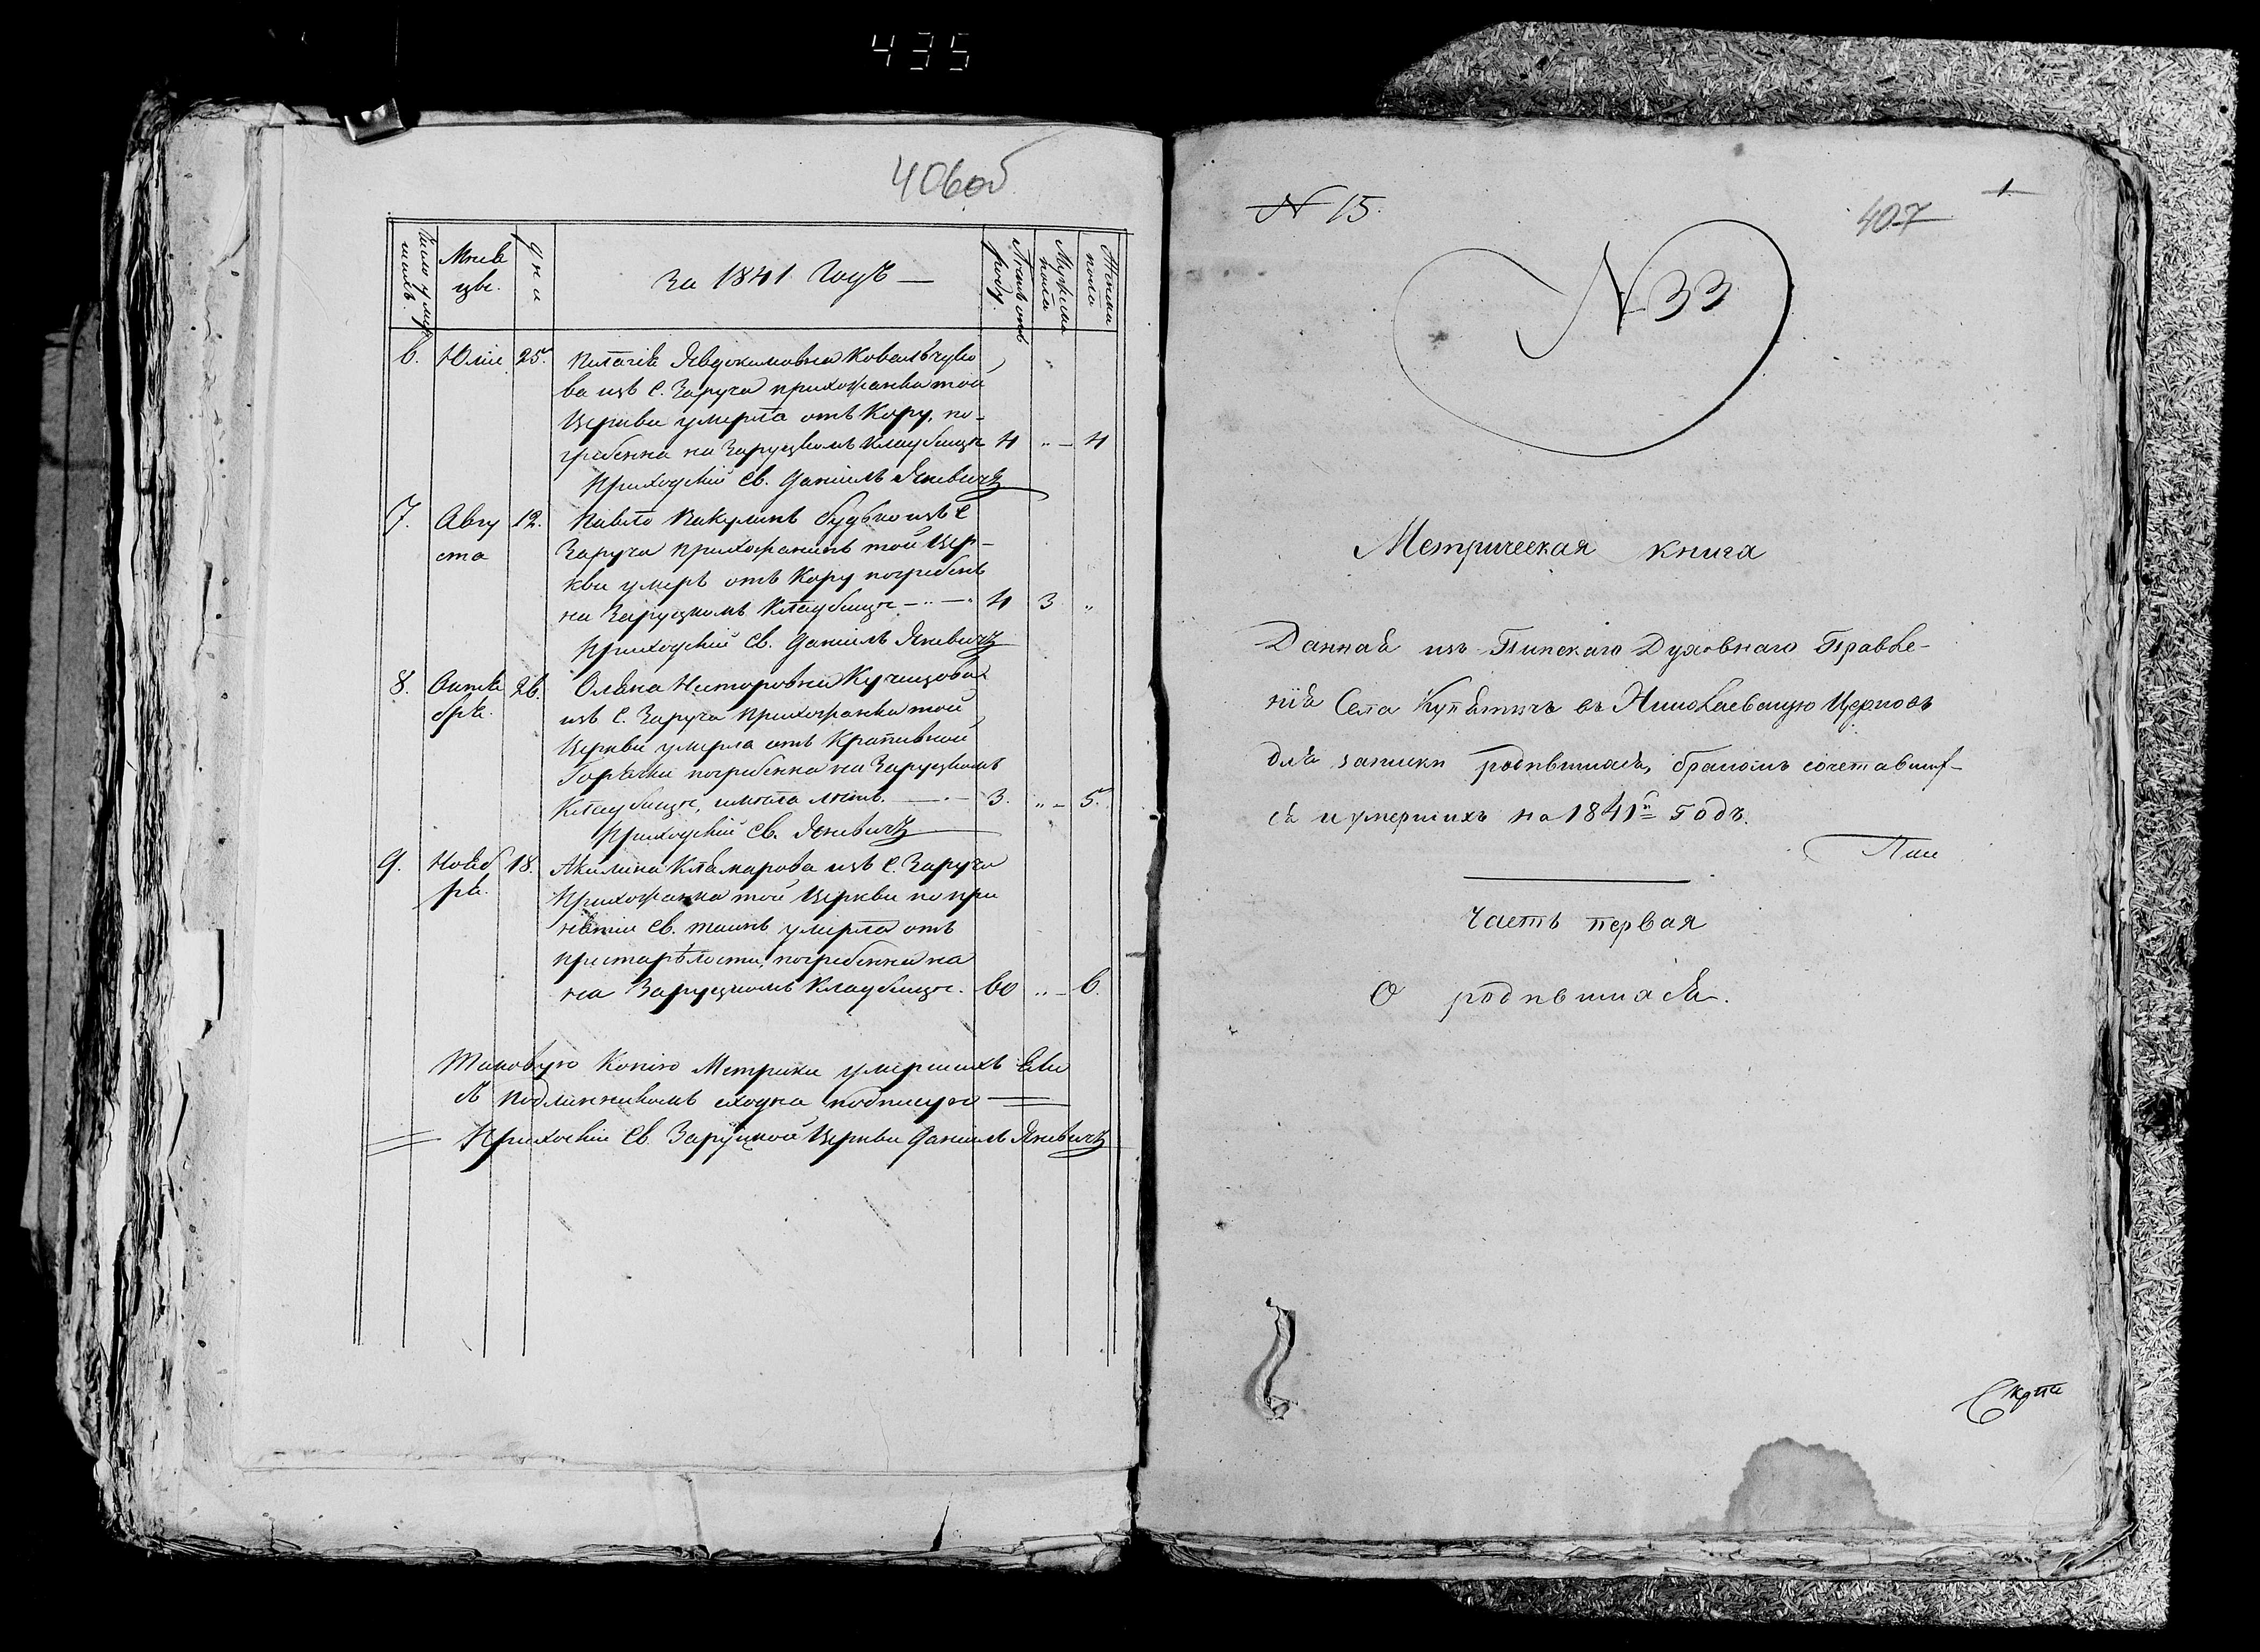 435
406об
Число умер
шихъ.
Мѣся
цы.
Дни
За 1841 Годъ —
Лѣтъ отъ
роду.
Мужеска
пола
Женска
пола
6. Юля 25. Пелагія Явдокимовна Ковальчуко
ва изъ С. Заруча прихожанка той
Церкви умерла отъ Кору, по-
гребенна на Заруцкомъ Кладбищѣ 4 „ – 4
Приходскій Св. Даніилъ Яневичъ
7. Авгу 12. Павло Вакулинъ Будько изъ С
ста Заруча прихожанинъ той Цер-
кви умеръ отъ Кору погребенъ
на Заруцкомъ Кладбищѣ – „ – „ 4 3 „
Приходскій Св. Даніилъ Яневичъ
8. Октя 26. Олѣна Несторовна
бря. изъ С. Заруча прихожанка той
Церкви умерла отъ Крапивной
Горячки погребенна на Заруцкомъ
Кладбищѣ, имѣла лѣтъ. — · – 3. „ – 5.
Приходскій Св. Яневичъ
9. Нояб 18. Акилина из С. Заруча
ря. Прихожанка той Церкви по при
нятіи Св. таинъ умерла отъ
престарѣлости, погребенна на
на Заруцкомъ Кладбищѣ. 60 „ – 6.
Таковую Копію Метрики умершихъ
съ подлинникомъ сходна подписую
Прихоскій Св. Заруцкой Церкви Даніилъ Яневичъ
N 15.
407
1
N 33
Метрическая книга
Данная изъ Пинскаго Духовнаго Правле-
нія Села Купятичъ въ Николаевскую Церковь
для записки родившихся, бракомъ сочетавшиx-
ся и умершихъ на 1841й Годъ.
Часть первая
О родившихся.
Скрпи